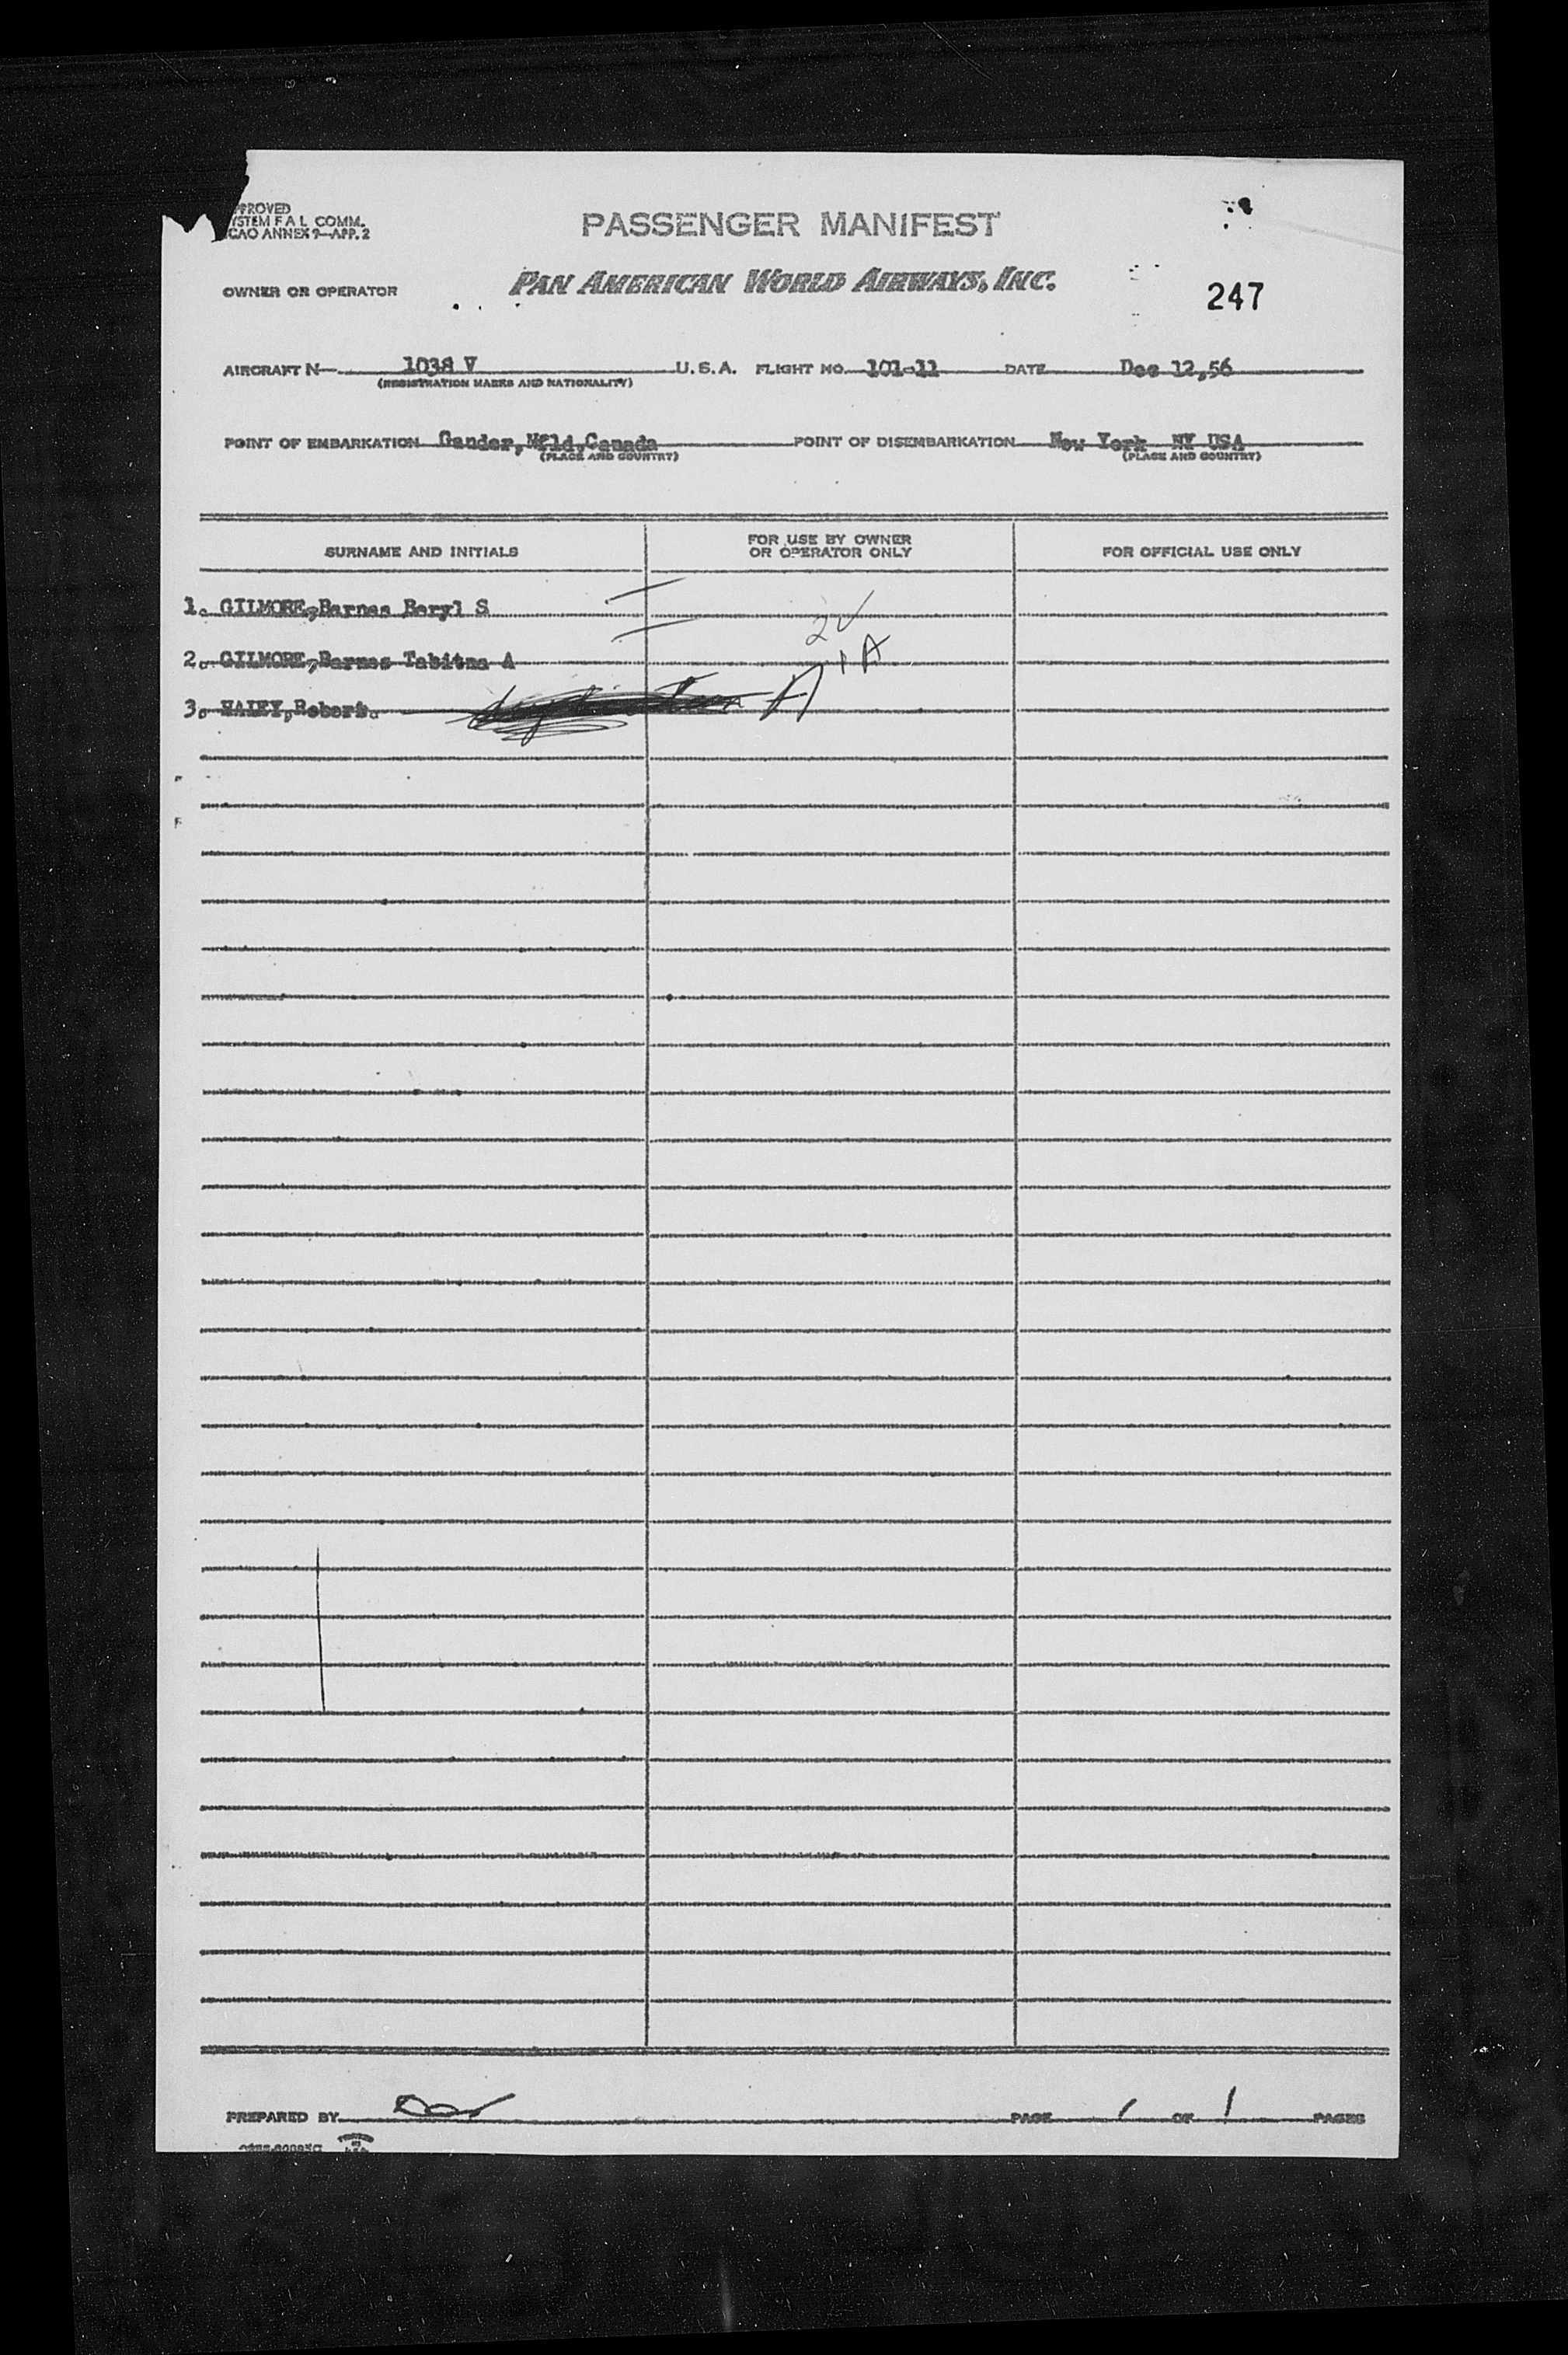 PPROVED
YSTEM F A L COMM.
CAO ANNEX 9—APP. 2
PASSENGER MANIFEST
OWNER OR OPERATOR PAN AMERICAN WORLD AIRWAYS, INC.
247
AIRCRAFT N 1038 V U.S.A. FLIGHT NO. 101-11 DATE Dec 12,56
(REGISTRATION MARKS AND NATIONALITY)
POINT OF EMBARKATION Gander, Nfld, Canada POINT OF DISEMBARKATION New York NY USA
(PLACE AND COUNTRY) (PLACE AND COUNTRY)
SURNAME AND INITIALS FOR USE BY OWNER OR OPERATOR ONLY FOR OFFICIAL USE ONLY
1. GILMORE, Barnes Beryl S
2 ✓
2. GILMORE, Barnes Tabitna A
1 A
3. Robert. A
PREPARED BY PAGE 1 OF 1 PAGES